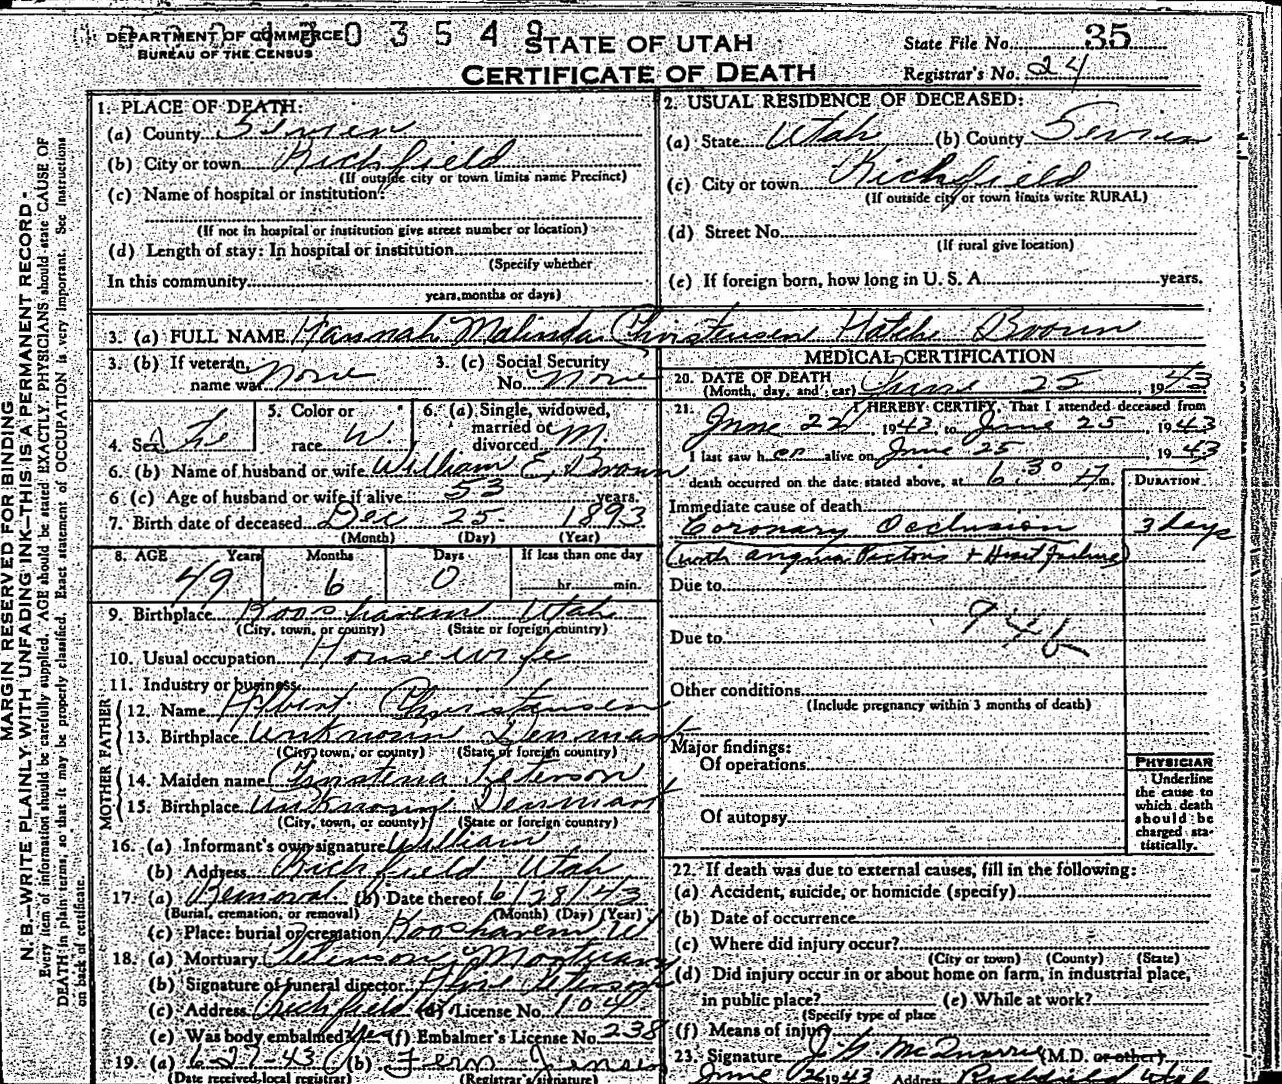 DEPARTMENT OF COMMERCE
BUREAU OF THE CENSUS
0 3 5 4 9
STATE OF UTAH
CERTIFICATE OF DEATH
State File No. 35
Registrar's No. 24
MARGIN RESERVED FOR BINDING
N. B.—WRITE PLAINLY WITH UNFADING INK—THIS IS A PERMANENT RECORD.
Every item of information should be carefully supplied. AGE should be stated EXACTLY. PHYSICIANS should state CAUSE OF
DEATH in plain terms, so that it may be properly classified. Exact statement of OCCUPATION is very important. See Instructions
on back of certificate.
1. PLACE OF DEATH:
(a) County Sevier
(b) City or town Richfield
(If outside city or town limits name Precinct)
(c) Name of hospital or institution:
(If not in hospital or institution give street number or location)
(d) Length of stay: In hospital or institution
(Specify whether
In this community
years, months or days)
2. USUAL RESIDENCE OF DECEASED:
(a) State Utah (b) County Sevier
(c) City or town Richfield
(If outside city or town limits write RURAL)
(d) Street No.
(If rural give location)
(e) If foreign born, how long in U. S. A. years.
3. (a) FULL NAME Hannah Malinda Christensen Hatche Brown
3. (b) If veteran, name war None
3. (c) Social Security No. None
4. Sex Fe
5. Color or race W.
6. (a) Single, widowed, married or divorced M.
6. (b) Name of husband or wife William E. Brown
6 (c) Age of husband or wife if alive 53 years.
7. Birth date of deceased Dec 25. 1893
(Month) (Day) (Year)
8. AGE Years Months Days If less than one day
49 6 0 hr. min.
9. Birthplace Koosharem Utah
(City, town, or county) (State or foreign country)
10. Usual occupation Housewife
11. Industry or business
FATHER
12. Name Albert Christensen
13. Birthplace Unknown Denmark
(City, town, or county) (State or foreign country)
MOTHER
14. Maiden name Peterson
15. Birthplace Unknown Denmark
(City, town, or county) (State or foreign country)
16. (a) Informant's own signature William
(b) Address Richfield Utah
17. (a) Removal (b) Date thereof 6/28/43
(Burial, cremation, or removal) (Month) (Day) (Year)
(c) Place: burial or cremation Koosharem U
18. (a) Mortuary Peterson Mortuary
(b) Signature of funeral director Peterson
(c) Address Richfield (d) License No. 104
(e) Was body embalmed Yes (f) Embalmer's License No. 238
19. (a) 6-27-43 (b) Fern Jensen
(Date received local registrar) (Registrar's signature)
MEDICAL CERTIFICATION
20. DATE OF DEATH June 25, 1943
(Month, day, and year)
21. I HEREBY CERTIFY, That I attended deceased from
June 22, 1943, to June 25, 1943
I last saw her alive on June 25, 1943
death occurred on the date stated above, at 6:30 m.
DURATION
Immediate cause of death
Coronary Occlusion 3 days
(with angina Pectoris & Heart Failure)
Due to
Due to
Other conditions
(Include pregnancy within 3 months of death)
Major findings:
Of operations
Of autopsy
PHYSICIAN
Underline
the cause to
which death
should be
charged sta-
tistically.
22. If death was due to external causes, fill in the following:
(a) Accident, suicide, or homicide (specify)
(b) Date of occurrence
(c) Where did injury occur?
(City or town) (County) (State)
(d) Did injury occur in or about home on farm, in industrial place,
in public place? (e) While at work?
(Specify type of place
(f) Means of injury
23. Signature J. G. McQuarrie (M.D. or other)
June 1943 Address Richfield Utah